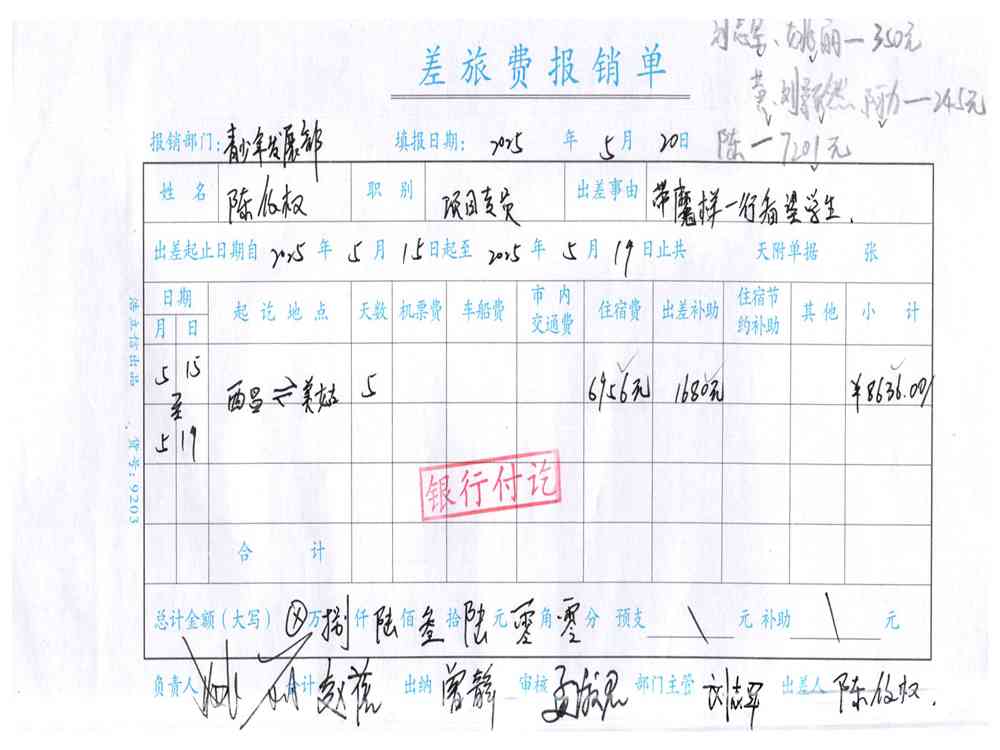 差旅费报销单
丽一350元
一245元
陈一7201元
报销部门:青少年发展部 填报日期: 2025 年 5 月 20 日
姓名 陈俊权 职别 项目专员 出差事由 带魔样一行看望学生.
出差起止日期自 2025 年 5 月 15 日起至 2025 年 5 月 19 日止共 天附单据 张
日期 起讫地点 天数 机票费 车船费 市内交通费 住宿费 出差补助 住宿节约补助 其他 小计
月 日
5 15 至 5 19 西昌⇌美姑 5 6956元 1680元 ¥8636.00
银行付讫
合计
总计金额(大写) ⊗万捌仟陆佰叁拾陆元零角零分 预支 \ 元 补助 \ 元
负责人 会计 赵 出纳 曾静 审核 部门主管 刘志军 出差人 陈俊权.
浩立信出品 货号:9203